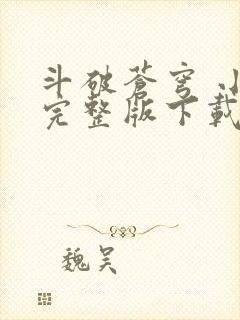 斗破苍穹
完整版下载
魏吴